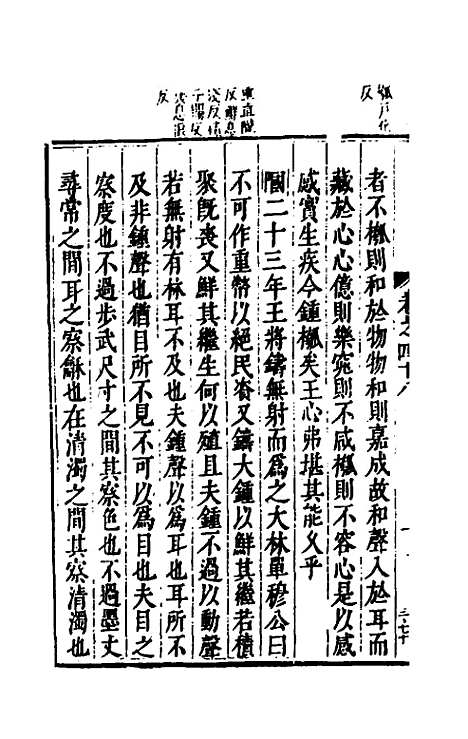 者不槬則和於物物和則嘉成故和聲入於耳而
藏於心心億則樂窕則不咸槬則不容心是以感
感實生疾今鍾槬矣王心弗堪其能久乎
國二十三年王將鑄無射而爲之大林單穆公曰
不可作重幣以絕民資又鑄大鍾以鮮其繼若積
聚旣喪又鮮其繼生何以殖且夫鍾不過以動聲
若無射有林耳不及也夫鍾聲以爲耳也耳所不
及非鍾聲也猶目所不見不可以爲目也夫目之
察度也不過步武尺寸之間其察色也不過墨丈
尋常之間耳之察龢也在清濁之間其察清濁也
卷之四十八
反
重直隴
反鮮息
淺反
反